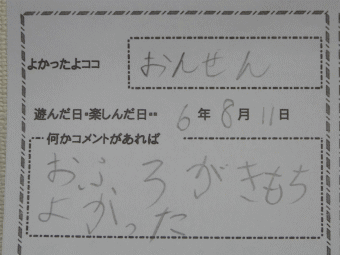 よかったよココ おんせん
遊んだ日・楽しんだ日・・ 6年8月11日
何かコメントがあれば
おふろがきもち
よかった